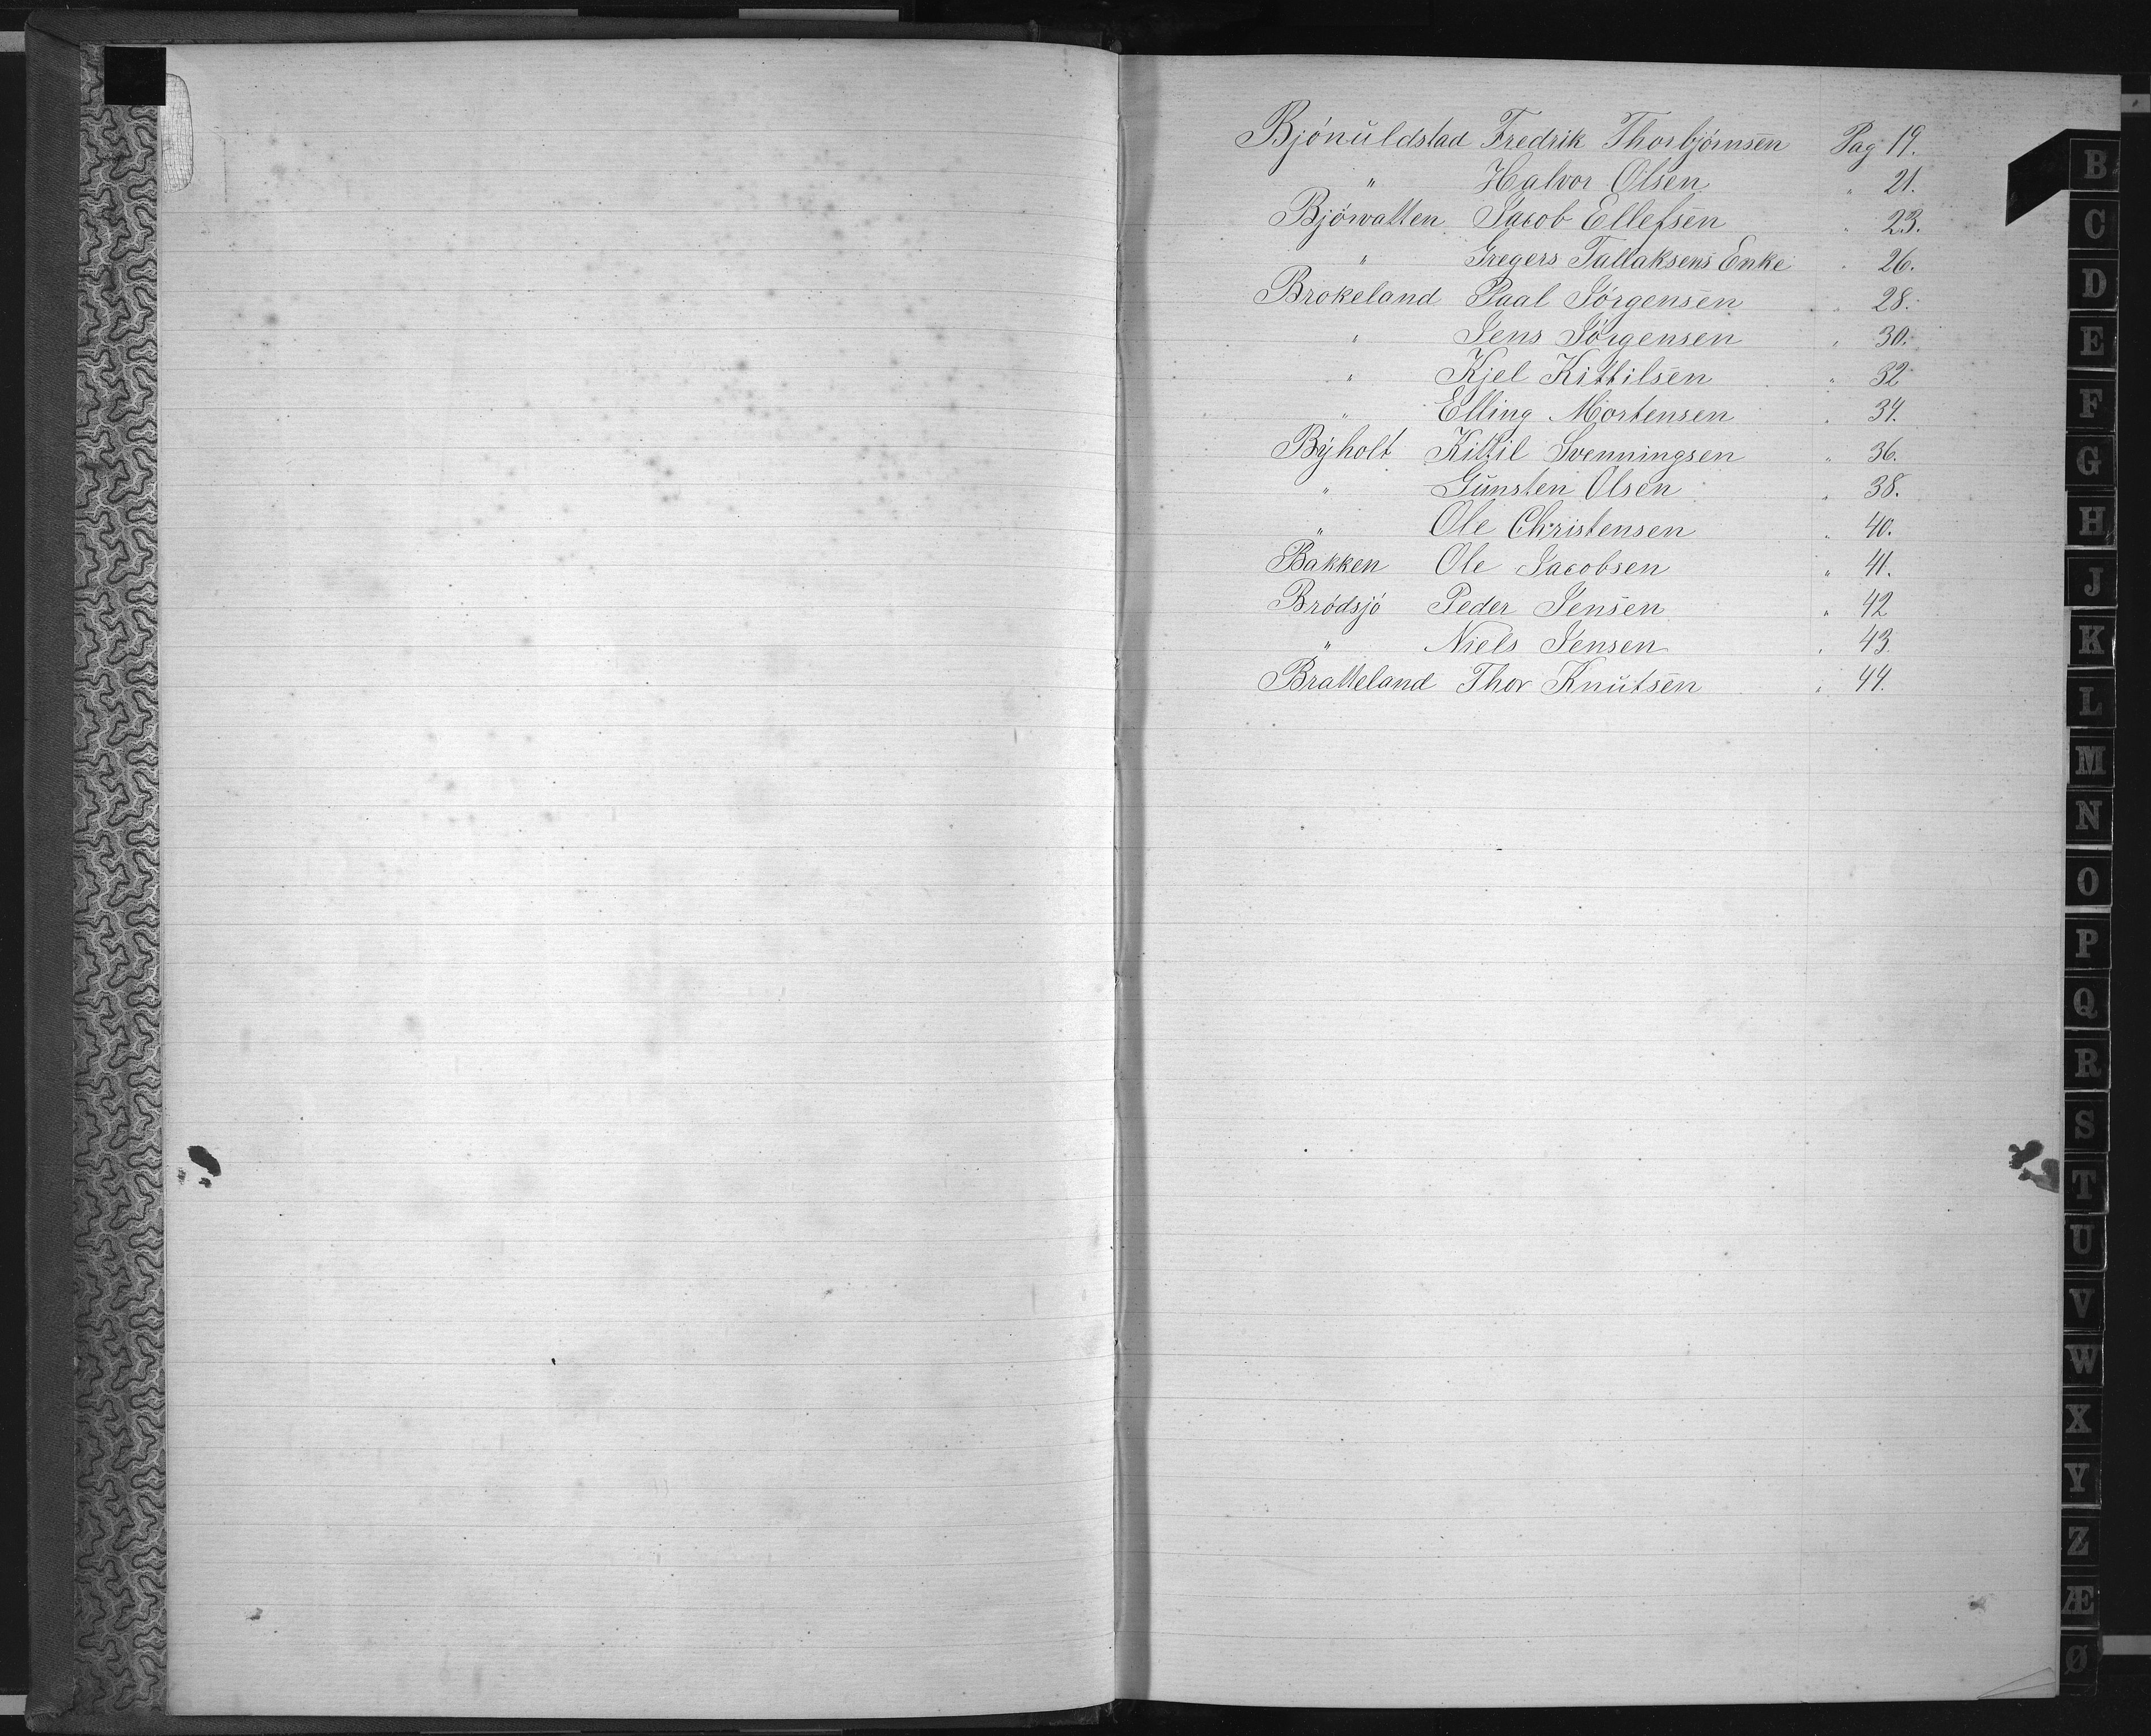 Bjónuldstad Fredrik Thorbjörnsen Pag 19.
" Halvor Olsen " 21.
Bjórvatten Jacob Ellefsen " 23.
" Gregers Tallaksens Enke " 26.
Brokeland Paal Jörgensen " 28.
" Jens Jörgensen " 30.
" Kjel Kittilsen " 32
" Elling Mortensen " 34.
Byholt Kittil Svenningsen " 36.
" Gunsten Olsen " 38.
" Ole Christensen " 40.
Bakken Ole Jacobsen " 41.
Bródsjó Peder Jensen " 42
" Niels Jensen " 43.
Bratteland Thor Knutsen " 44.
B
C
D
E
F
G
H
J
K
L
M
N
O
P
Q
R
S
T
U
V
W
X
Y
Z
Æ
Ø